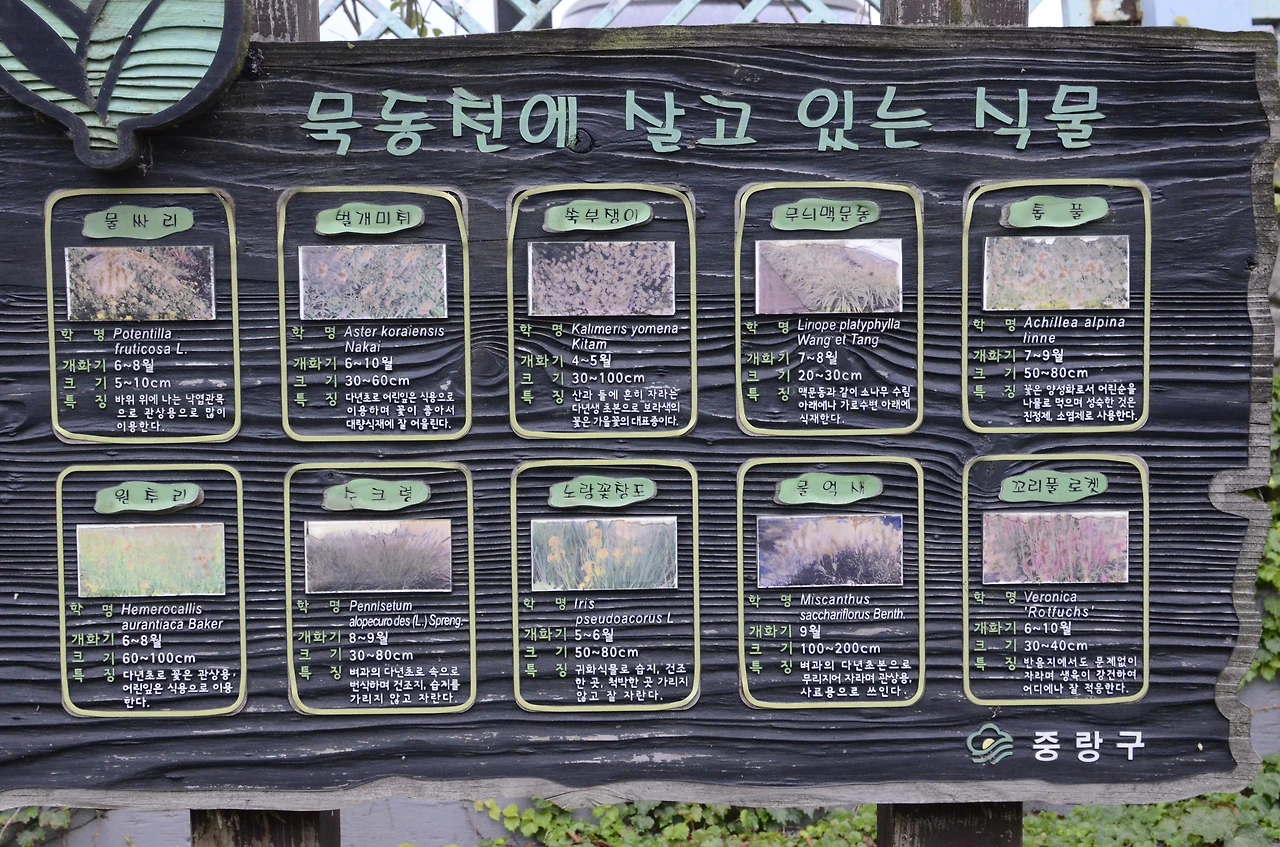 묵동천에 살고 있는 식물
물싸리
학 명 Potentilla
fruticosa L.
개화기 6~8월
크 기 5~10cm
특 징 바위 위에 나는 낙엽관목
으로 관상용으로 많이
이용한다.
벌개미취
학 명 Aster koraiensis
Nakai
개화기 6~10월
크 기 30~60cm
특 징 다년초로 어린잎은 식용으로
이용하며 꽃이 좋아서
대량식재에 잘 어울린다.
쑥부쟁이
학 명 Kalimeris yomena
Kitam
개화기 4~5월
크 기 30~100cm
특 징 산과 들에 흔히 자라는
다년생 초본으로 보라색의
꽃은 가을꽃의 대표종이다.
무늬맥문동
학 명 Liriope platyphylla
Wang et Tang
개화기 7~8월
크 기 20~30cm
특 징 맥문동과 같이 소나무 수림
아래에나 가로수변 아래에
식재한다.
톱풀
학 명 Achillea alpina
linne
개화기 7~9월
크 기 50~80cm
특 징 꽃은 양성화로서 어린순을
나물로 먹으며 성숙한 것은
진정제, 소염제로 사용한다.
원투리
학 명 Hemerocallis
aurantiaca Baker
개화기 6~8월
크 기 60~100cm
특 징 다년초로 꽃은 관상용,
어린잎은 식용으로 이용
한다.
수크령
학 명 Pennisetum
alopecurodes (L.) Spreng.
개화기 8~9월
크 기 30~80cm
특 징 벼과의 다년초로 속으로
번식하며 건조지, 습지를
가리지 않고 자란다.
노랑꽃창포
학 명 Iris
pseudoacorus L
개화기 5~6월
크 기 50~80cm
특 징 귀화식물로 습지, 건조
한 곳, 척박한 곳 가리지
않고 잘 자란다.
물억새
학 명 Miscanthus
sacchariflorus Benth.
개화기 9월
크 기 100~200cm
특 징 벼과의 다년초본으로
무리지어 자라며 관상용,
사료용으로 쓰인다.
꼬리풀로켓
학 명 Veronica
'Rotfuchs'
개화기 6~10월
크 기 30~40cm
특 징 반음지에서도 문제없이
자라며 생육이 강건하여
어디에나 잘 적응한다.
중랑구